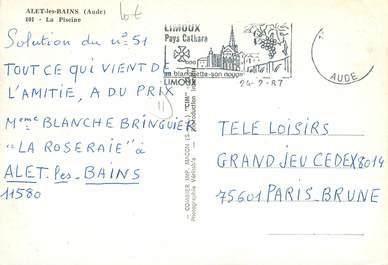 ALET-les-BAINS (Aude)
101 - La Piscine
lot
Solution du n° 51
TOUT CE QUI VIENT DE
L'AMITIE, A DU PRIX
Mme BLANCHE BRINGUIER
"LA ROSERAIE" à
ALET-les-BAINS
11580
LIMOUX
Pays Cathare
sa blanquette-son nougat
LIMOUX
AUDE
COMBIER IMP. MACON
"CIM"
Photographie Véritable - Reproduction
TELE LOISIRS
GRAND JEU CEDEX 8014
75601 PARIS BRUNE